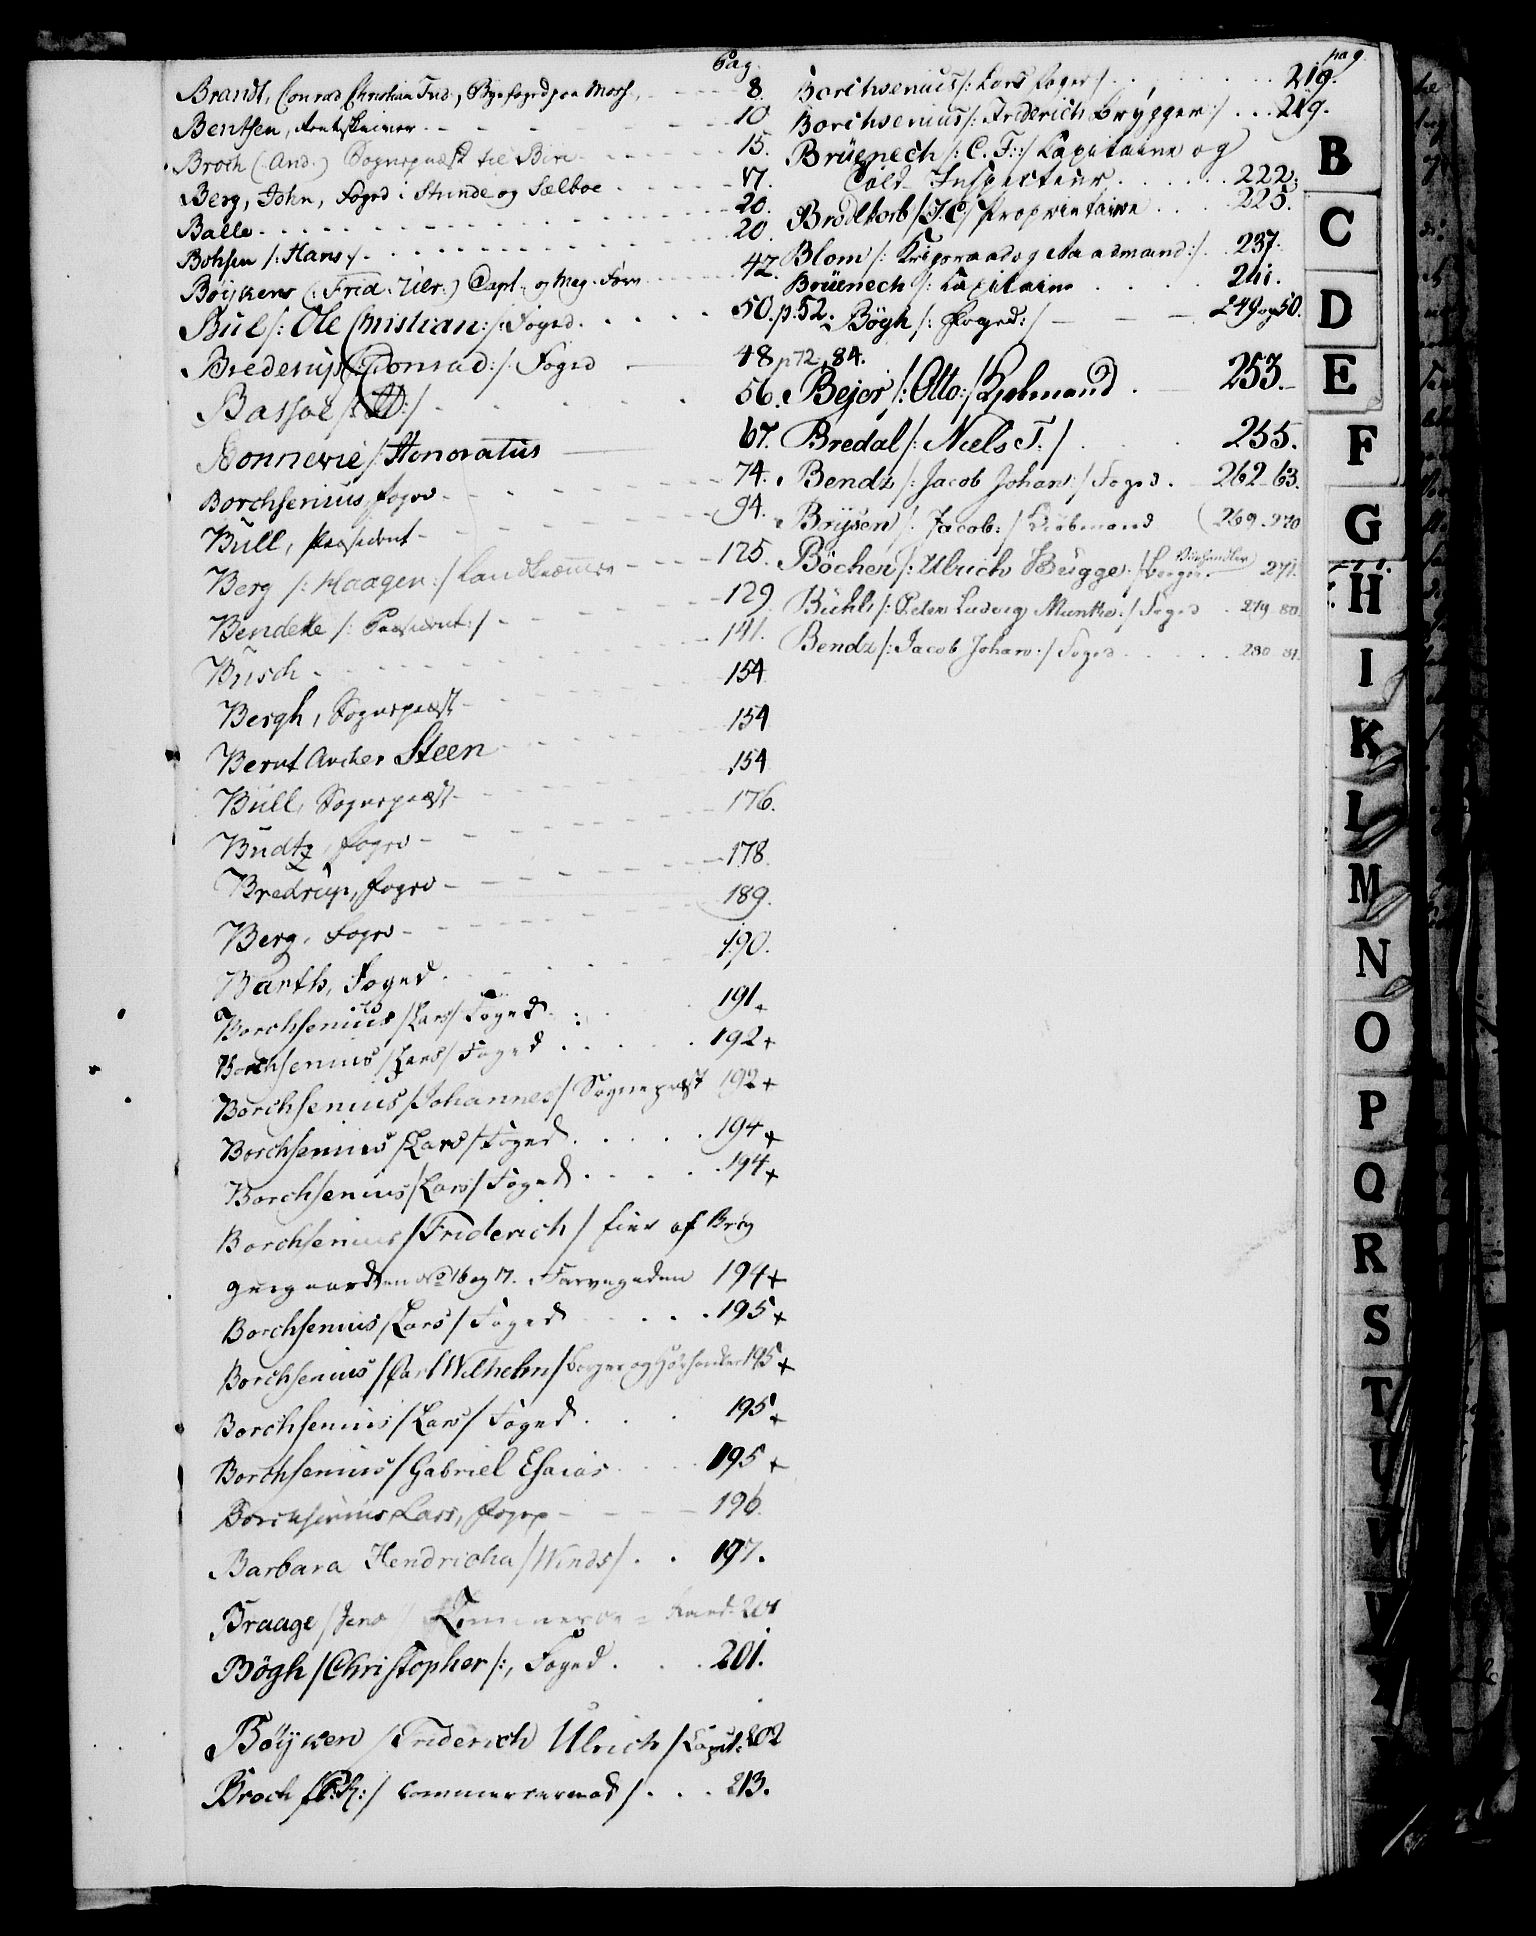 Pag.
Brandt, Conrad Christian Frid., Byefoged paa Mors. 8.
Bentsen, Amtskriver 10
Broch (And.) Sognepræst til Biri 15.
Berg, John, Foged i Strinde og Sælboe 17.
Balle 20.
Bohsen /: Hans :/ 20.
Böijkens (: Frid. Ulr:) Capt. og Mag. Forv. 42.
Bul /: Ole Christian :/ Foged 50. p. 52.
Brederup /: Conrad :/ Foged 48 p 72, 84.
Bassøe 56.
Bonnevie /: Honoratus 67.
Borchsenius, Foged 74.
Bull, Præsident 94.
Berg /: Haagen :/ Landkæmner 125.
Bendeke /: Præsident :/ 129.
Busch 141.
Bergh, Sognepræst 154
Bernt Ancher Steen 154
Bull, Sognepræst 154
Budtz, Foged 176.
Bredrup, Foged 178.
Berg, Foged 189.
Barth, Foged 190.
Borchsenius /Lars/ Foged 191 +
Borchsenius /Lars/ Foged 192 +
Borchsenius /Johannes/ Sognepræst 192 +
Borchsenius /Lars/ Foged 194 +
Borchsenius /Lars/ Foged 194 +
Borchsenius /Friderich/ Eier af Bryg
gergaarden No 16 og 17. Farvegaden 194 +
Borchsenius /Lars/ Foged 195 +
Borchsenius /Carl Wilhelm/ Borger og Hörhandler 195 +
Borchsenius /Lars/ Foged 195 +
Borchsenius /Gabriel Esaias 195 +
Borchsenius, Lars, Foged 196.
Barbara Hendricha /Winds/ 197.
Braage /Jens/ 201
Bögh /Christopher/:, Foged 201.
Böijken /Friderich Ulrich/ Capit: 202
Broch /: R:/ Commerceraad/ 213.
pag
Borchsenius /: Lars Foged / 219.
Borchsenius /: Friderich Brygger :/ 219.
Brüenech /: C. F. :/ Capitaine og
Told-Inspecteur 222.
Brodtkorb / J. C / Proprietaire 225.
Blom /: Krigsraad og Amtmand :/ 237.
Brüenech /: Capitaine 241.
Bögh /: Foged :/ 249 og 50.
Bejer /: Otto :/ Kjøbmand 253.
Bredal /: Niels T. / 255.
Bendz /: Jacob Johan :/ Foged 262-63.
Boysen /: Jacob :/ Kiøbmand 269-270
Böcher /: Ulrich Bugge :/ Borger 271.
Bühl /: Peter Ludvig Munthe :/ Foged 279 80.
Bendz /: Jacob Johan :/ Foged 280 81.
B
C
D
E
F
G
H
I
K
L
M
N
O
P
Q
R
S
T
U
V
W